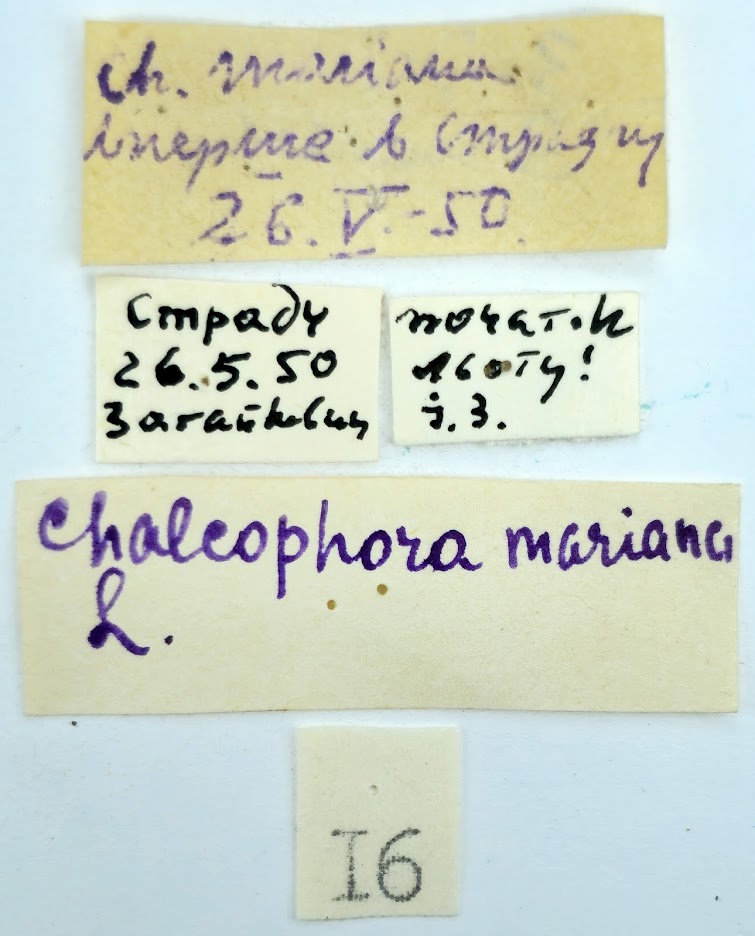 Ch. mariana
вперше в Страдчу
26.V.-50.
Страдч
26.5.50
Загайкевич
початок
льоту!
І.З.
Chalcophora mariana
L.
I6